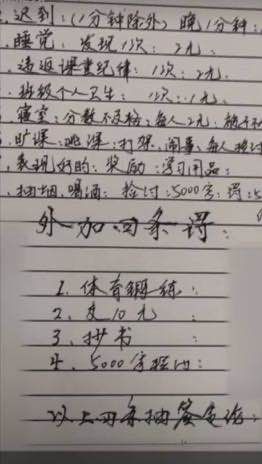 迟到:(1分钟除外) 晚1分钟:
睡觉:发现1次:2元.
违反课堂纪律:1次:2元.
班级个人卫生:1次:1元.
寝室:分数不足标:每人2元.
旷课、逃课:打架.闹事.每人检讨
表现好的:奖励:学习用品:
抽烟.喝酒:检讨:5000字:罚:5
外加四条罚:
1、体育锻练:
2、交10元:
3、抄书:
4、5000字检讨:
以上四条抽签定论: